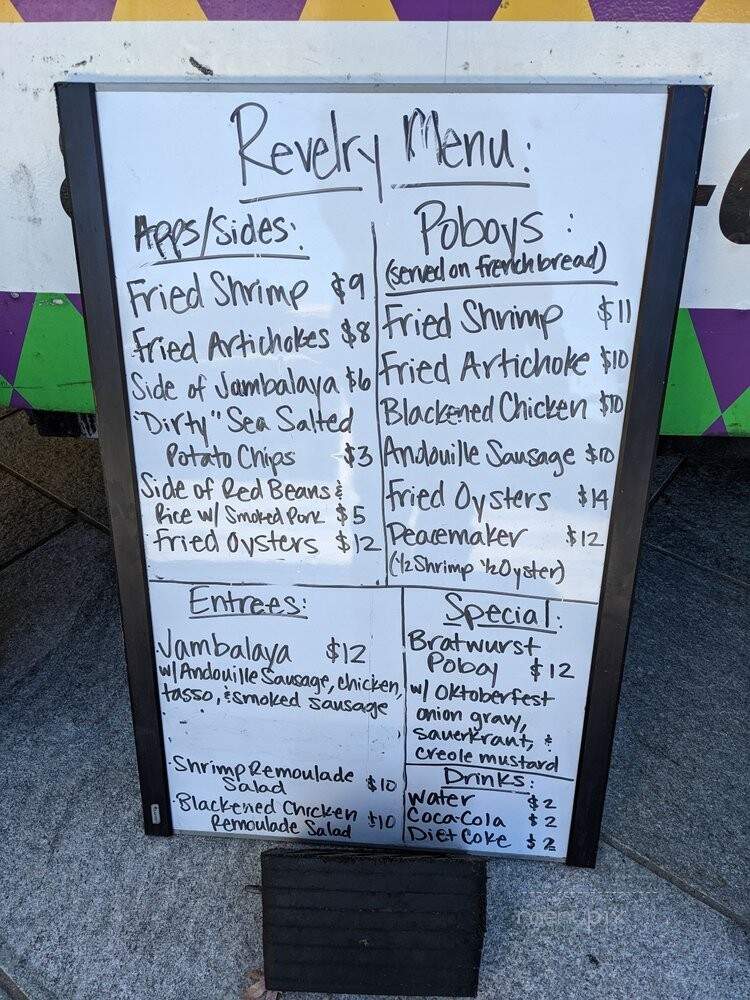 Revelry Menu:
Apps/Sides:
Fried Shrimp $9
Fried Artichokes $8
Side of Jambalaya $6
"Dirty" Sea Salted
Potato Chips $3
Side of Red Beans &
Rice w/ Smoked Pork $5
Fried Oysters $12
Poboys:
(served on french bread)
Fried Shrimp $11
Fried Artichoke $10
Blackened Chicken $10
Andouille Sausage $10
Fried Oysters $14
Peacemaker $12
(1/2 Shrimp 1/2 Oyster)
Entrees:
Jambalaya $12
w/ Andouille Sausage, chicken,
tasso, & smoked sausage
Shrimp Remoulade
Salad $10
Blackened Chicken
Remoulade Salad $10
Special:
Bratwurst
Poboy $12
w/ Oktoberfest
onion gravy,
sauerkraut, &
creole mustard
Drinks:
Water $2
Coca-Cola $2
Diet Coke $2
menupix